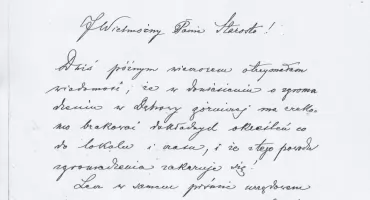 JWielmożny Panie Starosto!
Dziś późnym wieczorem otrzymałem
wiadomość, że w doniesieniu o zgroma
dzeniu w Dąbrowy górniczej ma rzeko
mo brakować dokładnych określeń co
do lokalu i czasu, i że z tego powodu
zgromadzenia zakazuje się!
Lecz w samem piśmie urzędowem